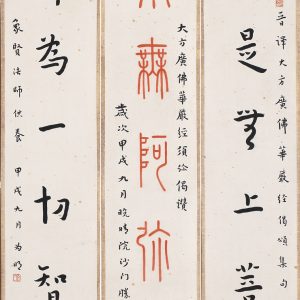 晉譯大方廣佛華嚴經偈頌集句
是無上
大方廣佛華嚴經須弥偈讚
無阿弥
歲次甲戌九月晚晴院沙門勝
為一切智
象賢法師供養 甲戌九月